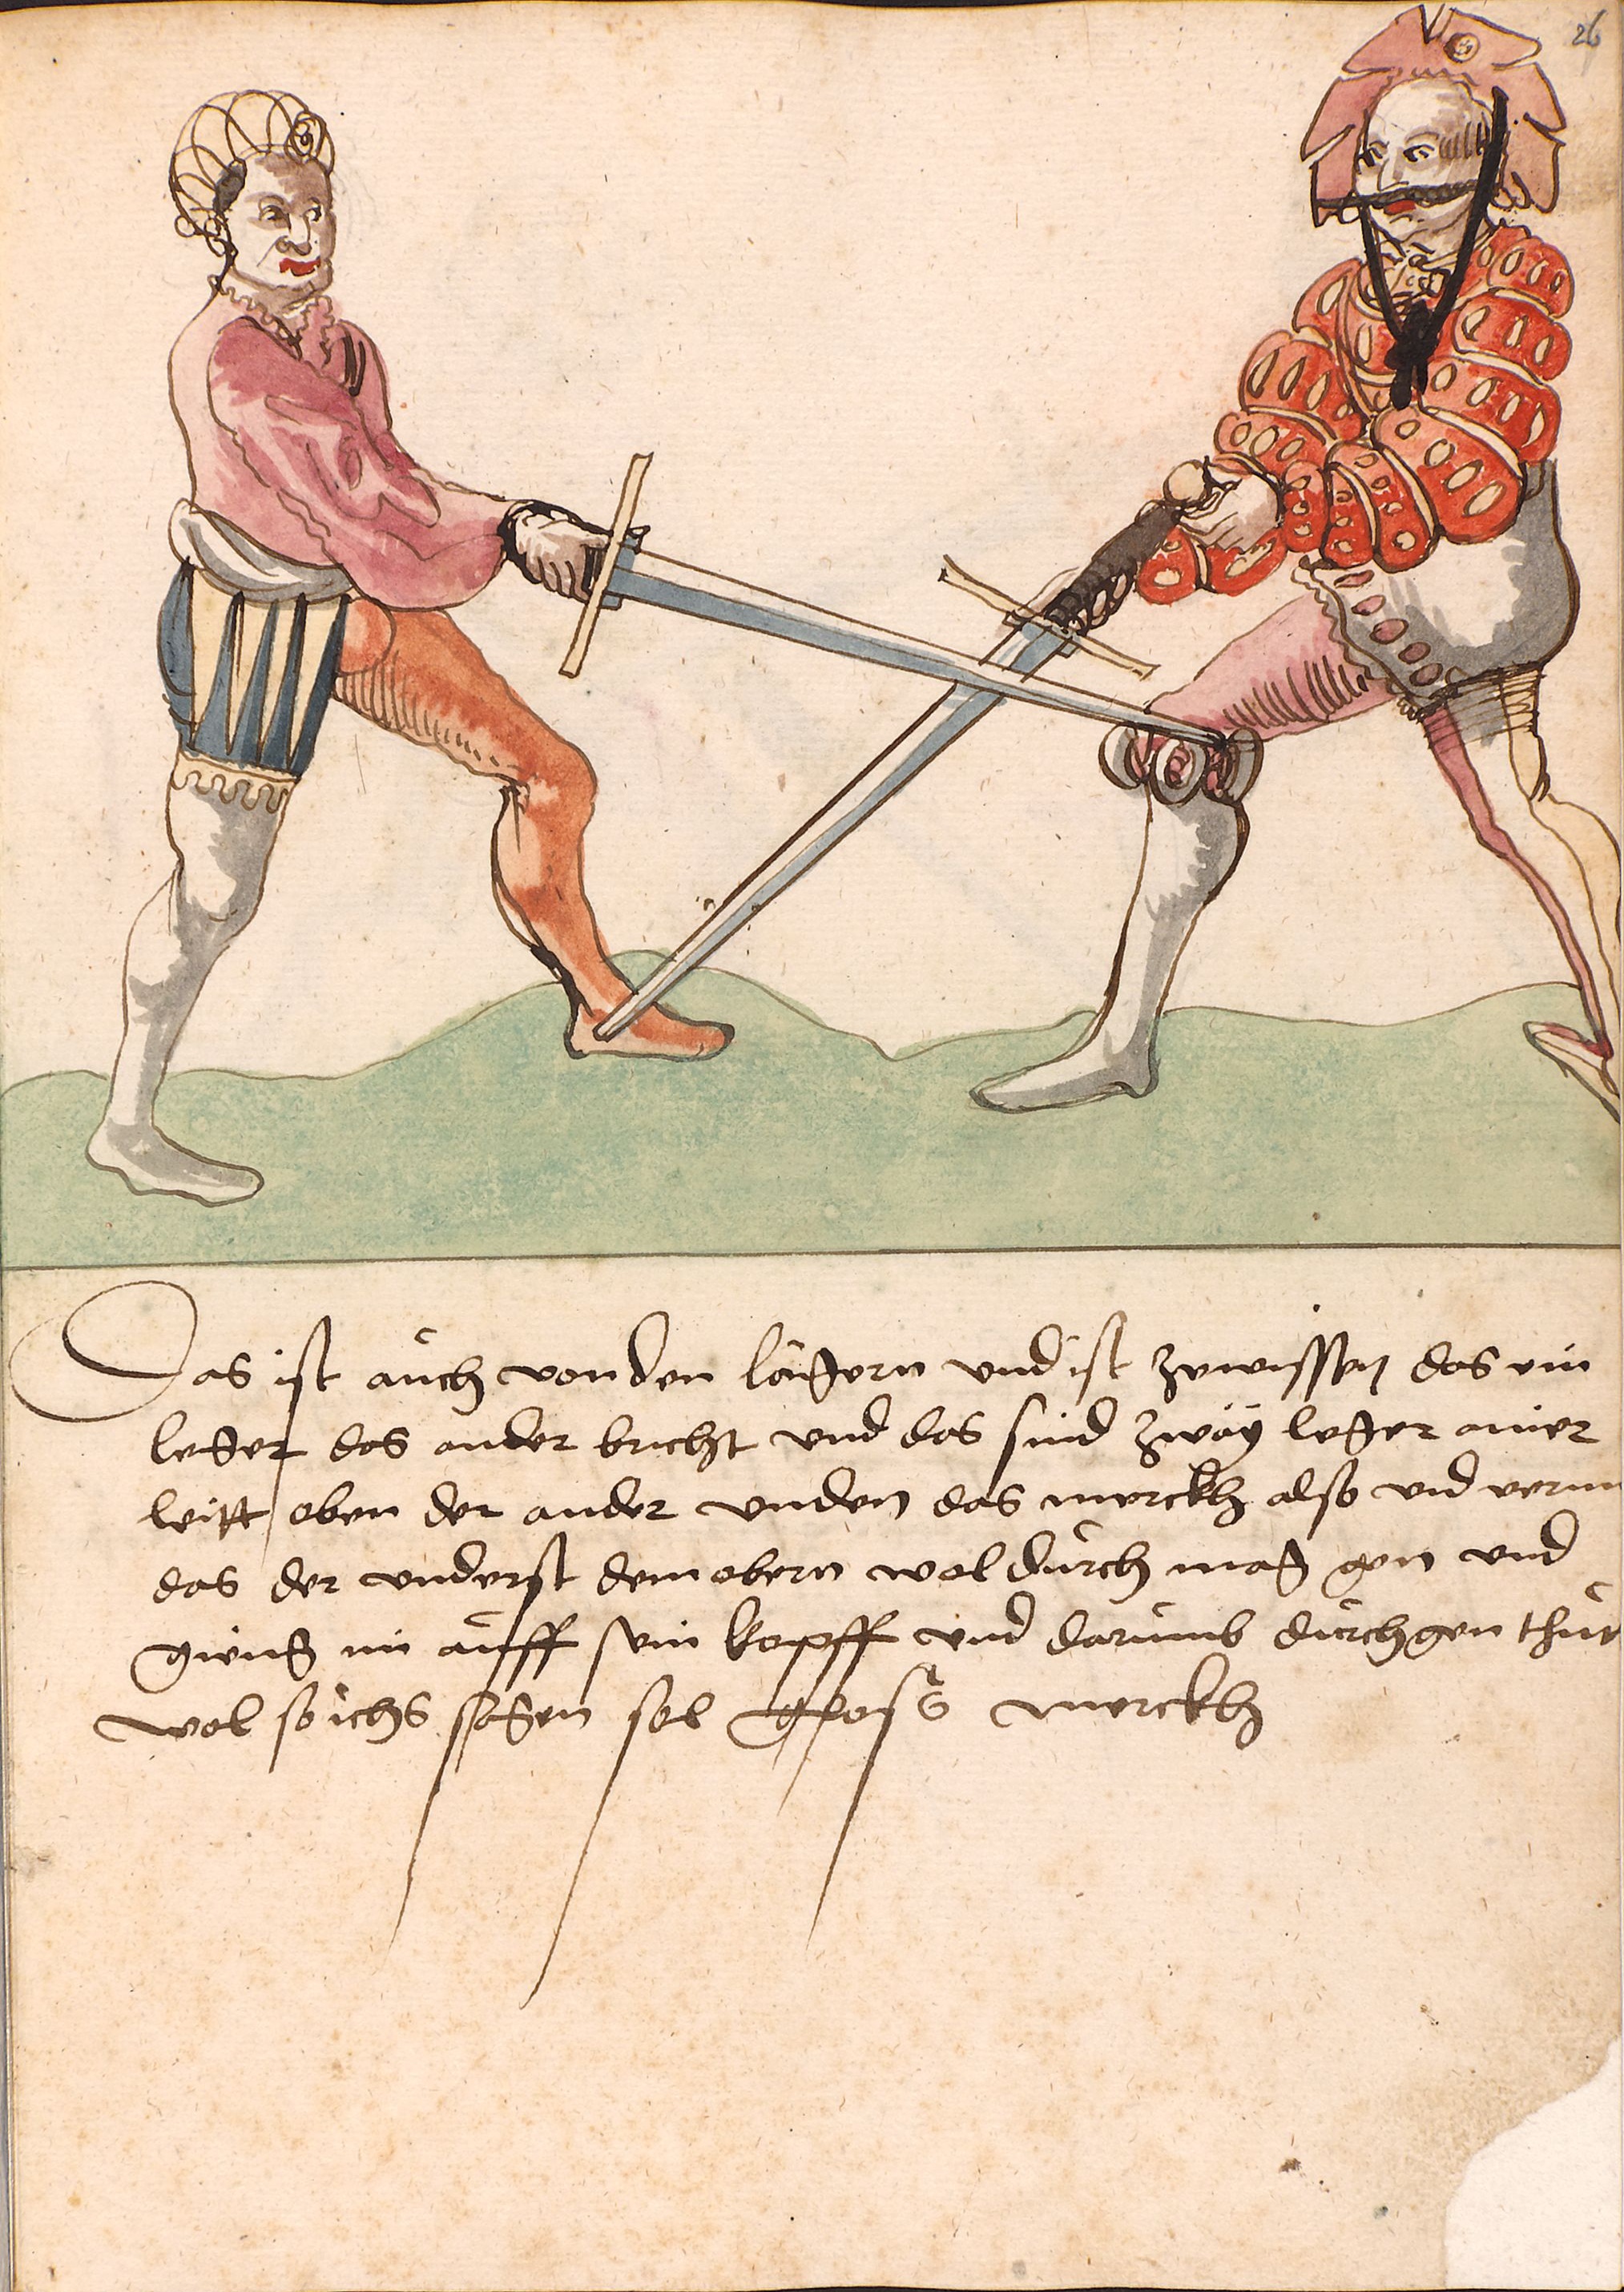 26
Das ist aůch von den lägern vnd ist zewissen das ein
leger das ander bricht vnd das sind zwäy leger ainer
leitt oben der ander vnden das merckh also vnd
das der vnderst dem obern wol důrch mag gen vnd
gieng im aůff sein kopff vnd darůmb důrchgen thůt
wol so ichs sagen sol merckh